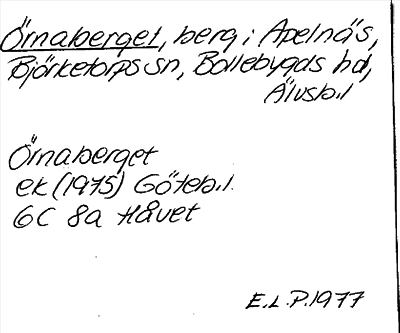 Örnaberget, berg i Apelnäs,
Björketorps sn, Bollebygds hd,
Älvsb.l
Örnaberget
ek (1975) Göteb.l.
6C 8a Håvet
E.L.P.1977